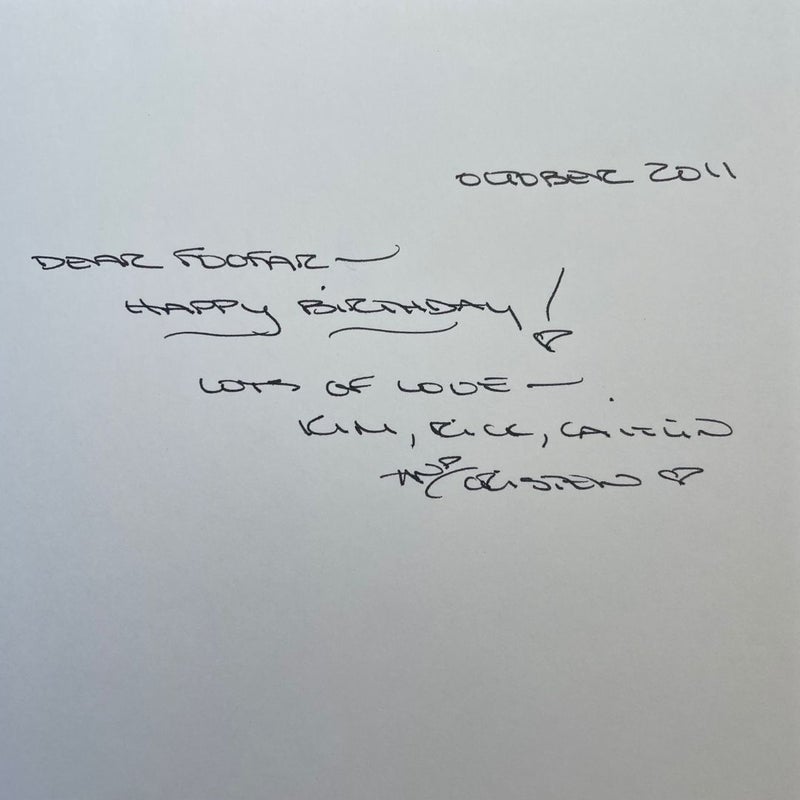 OCTOBER 2011
DEAR FOOFAR —
HAPPY BIRTHDAY!
LOTS OF LOVE —
KIM, RICK, CAITLIN
AND KRISTEN ♡